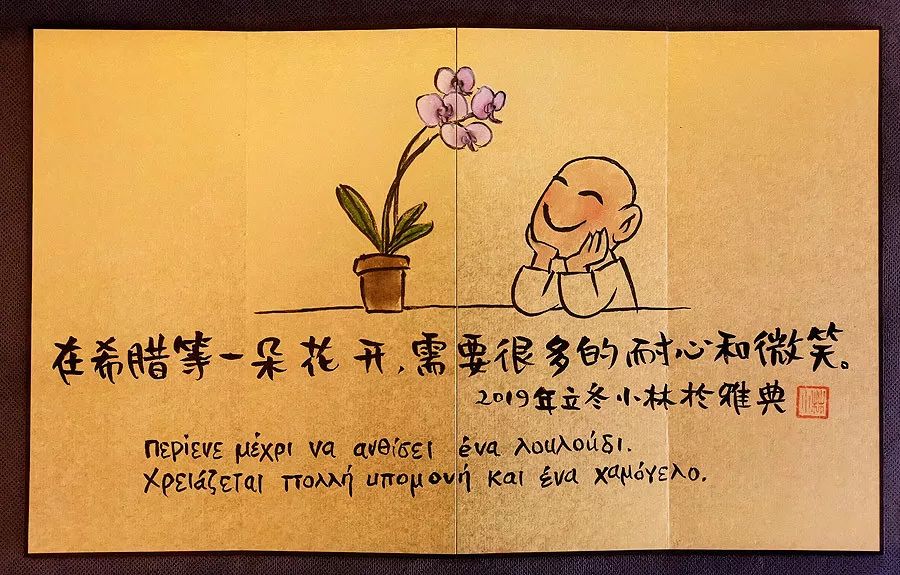 在希腊等一朵花开,需要很多的耐心和微笑。
2019年立冬小林於雅典
περίενε μέχρι να ανθίσει ένα λουλούδι.
Χρειάζεται πολλή υπομονή και ένα χαμόγελο.